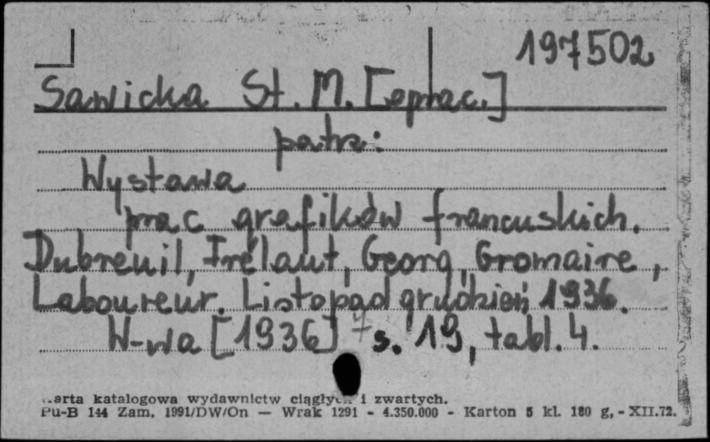 197502
Sawicka St. M. [oprac.]
patrz:
Wystawa
prac grafików francuskich.
Dubreuil, Frélaut, Georg, Gromaire,
Laboureur. Listopad grudzień 1936.
W-wa [1936] s. 19, tabl. 4.
karta katalogowa wydawnictw ciągłych i zwartych.
Pu-B 144 Zam. 1991/DW/On — Wrak 1291 - 4.350.000 - Karton 5 kl. 180 g, - XII.72.